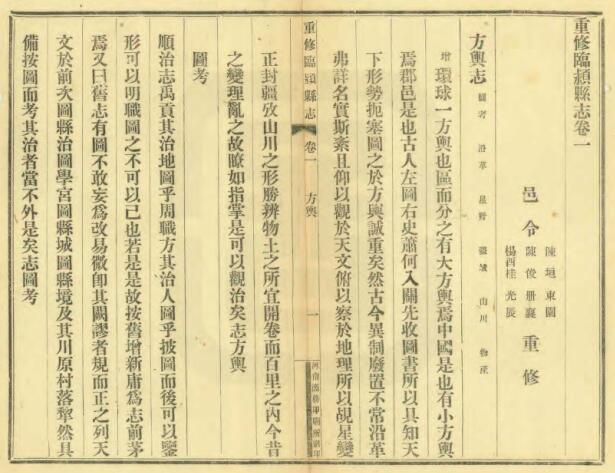 重修臨潁縣志卷一
邑令
陳垣東園
陳俊册襄
楊酉桂光辰
重修
方輿志
圖考 沿革 星野 疆域 山川 物產
增環球一方輿也區而分之有大方輿焉中國是也有小方輿
焉郡邑是也古人左圖右史蕭何入關先收圖書所以具知天
下形勢扼塞圖之於方輿誠重矣然古今異制廢置不常沿革
弗詳名實斯紊且仰以觀於天文俯以察於地理所以覘星變
重修臨潁縣志
卷一
方輿
一
正封疆攷山川之形勝辨物土之所宜開卷而百里之內今昔
之變理亂之故瞭如指掌是可以觀治矣志方輿
圖考
順治志禹貢其治地圖乎周職方其治人圖乎披圖而後可以鑒
形可以明職圖之不可以已也若是是故按舊增新庸爲志前茅
焉又曰舊志有圖不敢妄爲改易微卽其闕謬者規而正之列天
文於前次圖縣治圖學宮圖縣城圖縣境及其川原村落犂然具
備按圖而考其治者當不外是矣志圖考